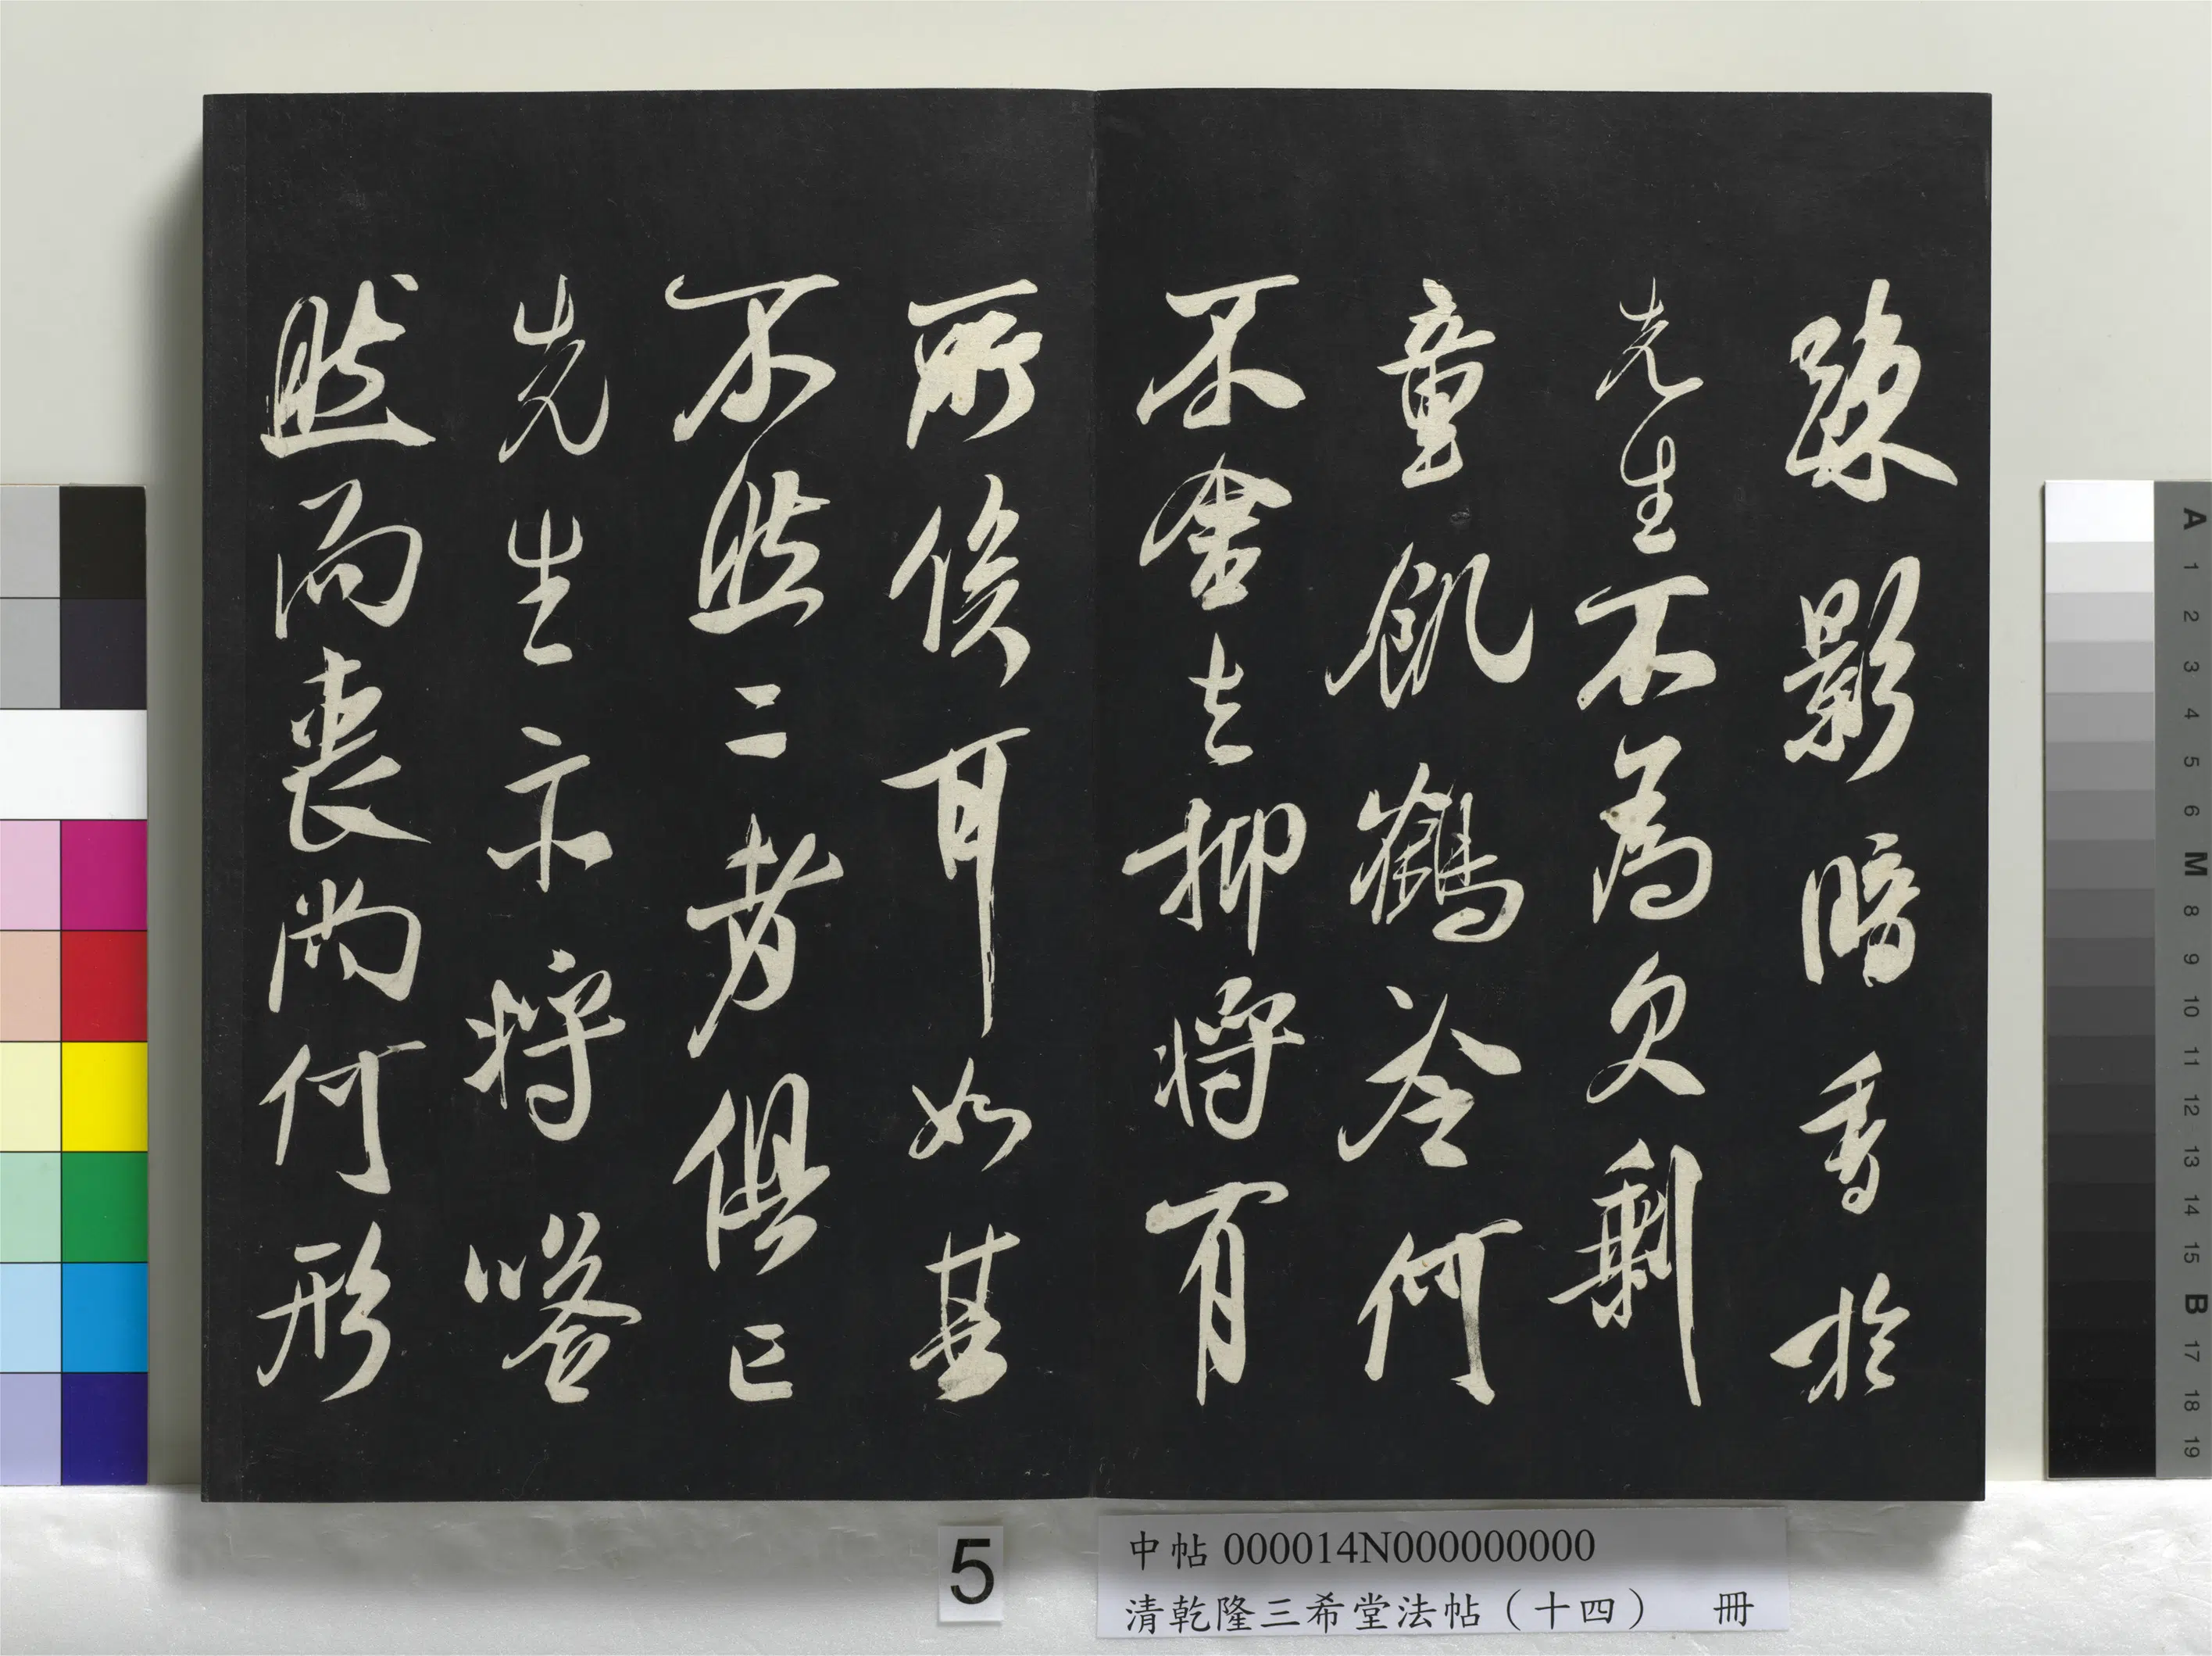 疎影暗香於
先生不為欠剩
童飢鶴冷何
不舍去抑將有
所俟耶如其
不然二者俱亡
先生亦將嗒
然而喪尚何形
5
中帖 000014N000000000
清乾隆三希堂法帖（十四） 冊
A 1 2 3 4 5 6 M 8 9 10 11 12 13 14 15 B 17 18 19